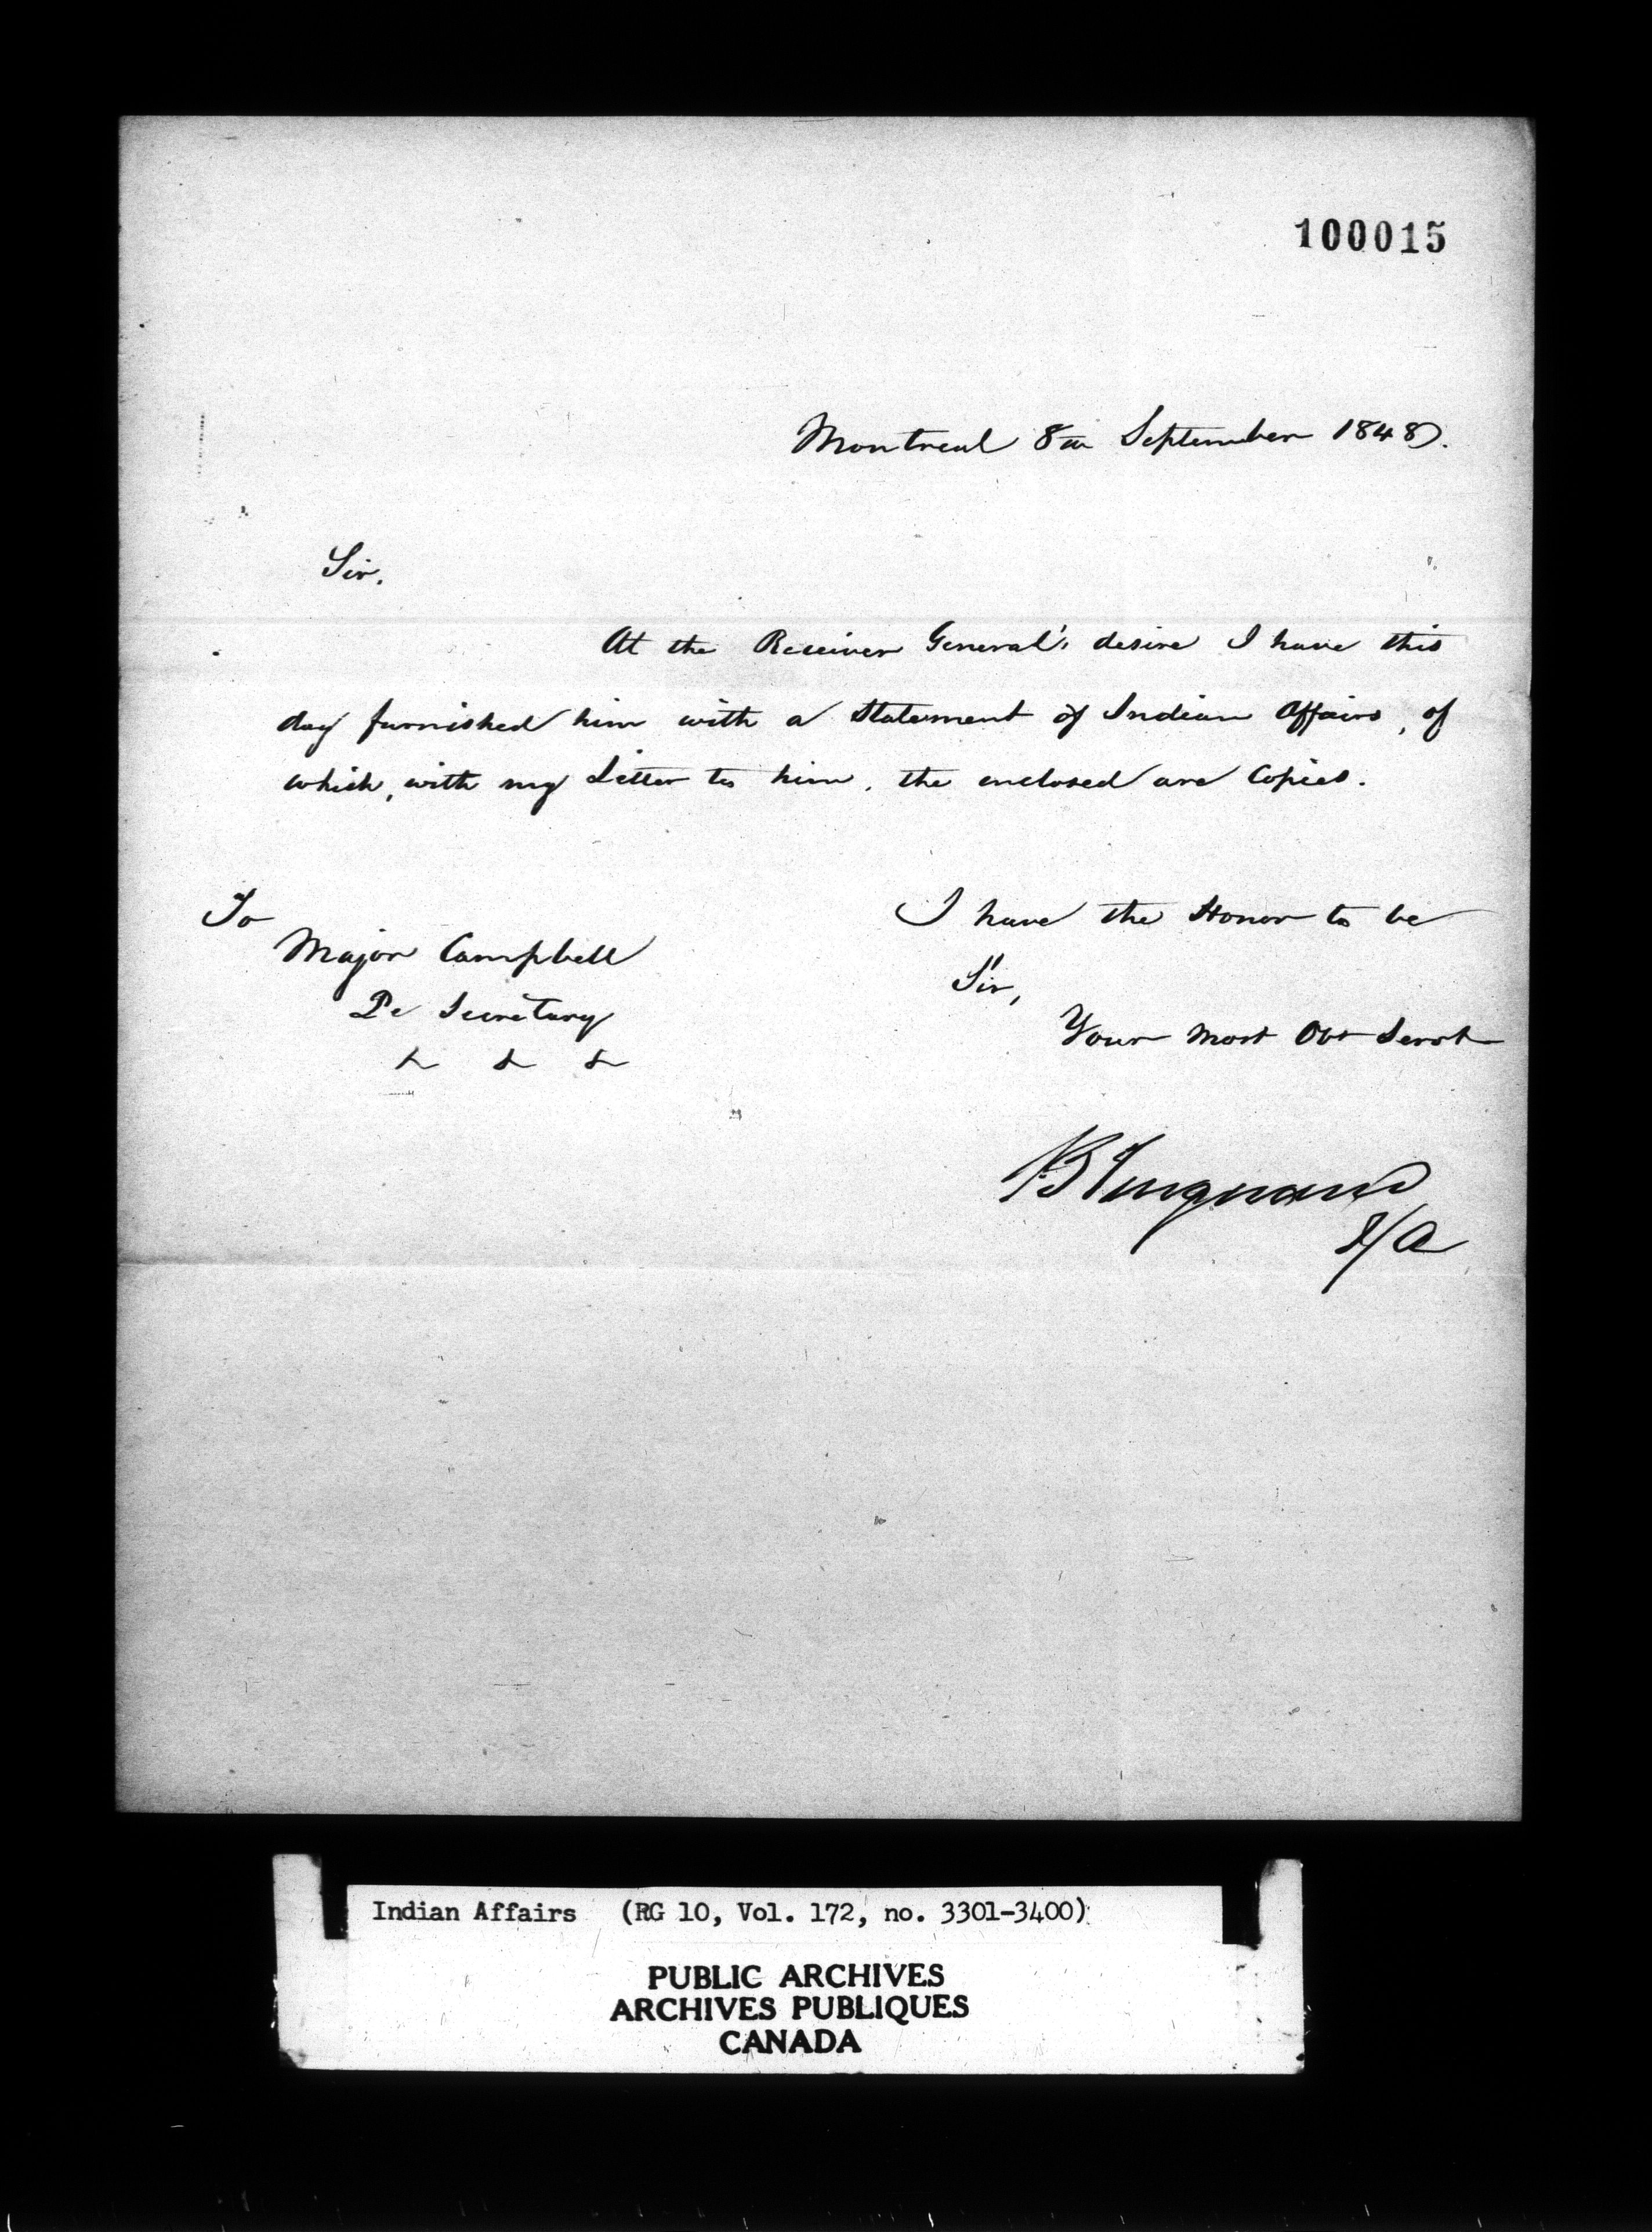 100015
Montreal 8th September 1848.
Sir.
At the Receiver General's desire I have this
day furnished him with a Statement of Indian Affairs, of
which, with my Letter to him, the enclosed are Copies.
To
Major Campbell
Pe Secretary
& & &
I have the Honor to be
Sir,
Your Most Obt Servt
B Turquand
I/A
Indian Affairs (RG 10, Vol. 172, no. 3301-3400)
PUBLIC ARCHIVES
ARCHIVES PUBLIQUES
CANADA